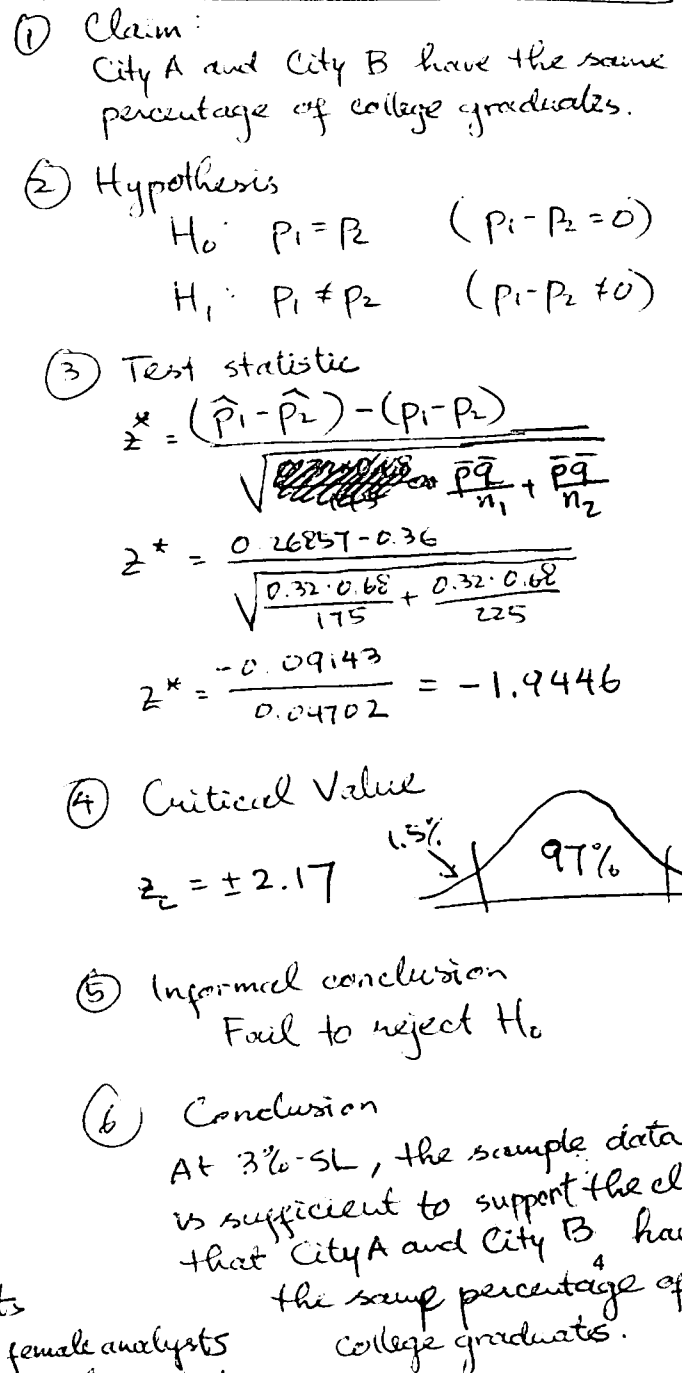 ① Claim:
City A and City B have the same
percentage of college graduates.
② Hypothesis
H₀: p₁ = p₂ (p₁ - p₂ = 0)
H₁: p₁ ≠ p₂ (p₁ - p₂ ≠ 0)
③ Test statistic
z* = (p̂₁ - p̂₂) - (p₁ - p₂) / √( p̄q̄/n₁ + p̄q̄/n₂ )
z* = 0.26857 - 0.36 / √( 0.32·0.68/175 + 0.32·0.68/225 )
z* = -0.09143 / 0.04702 = -1.9446
④ Critical Value
1.5% 97%
z_c = ±2.17
⑤ Informal conclusion
Fail to reject H₀
⑥ Conclusion
At 3%-SL, the sample data
is sufficient to support the cl
that City A and City B ha
4
ts the same percentage of
female analysts college graduates.